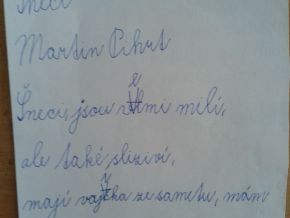 Šneci
Martin Pihrt
Šneci, jsou velmi milí,
ale také sliziví,
mají vajíčka ze sametu, mám